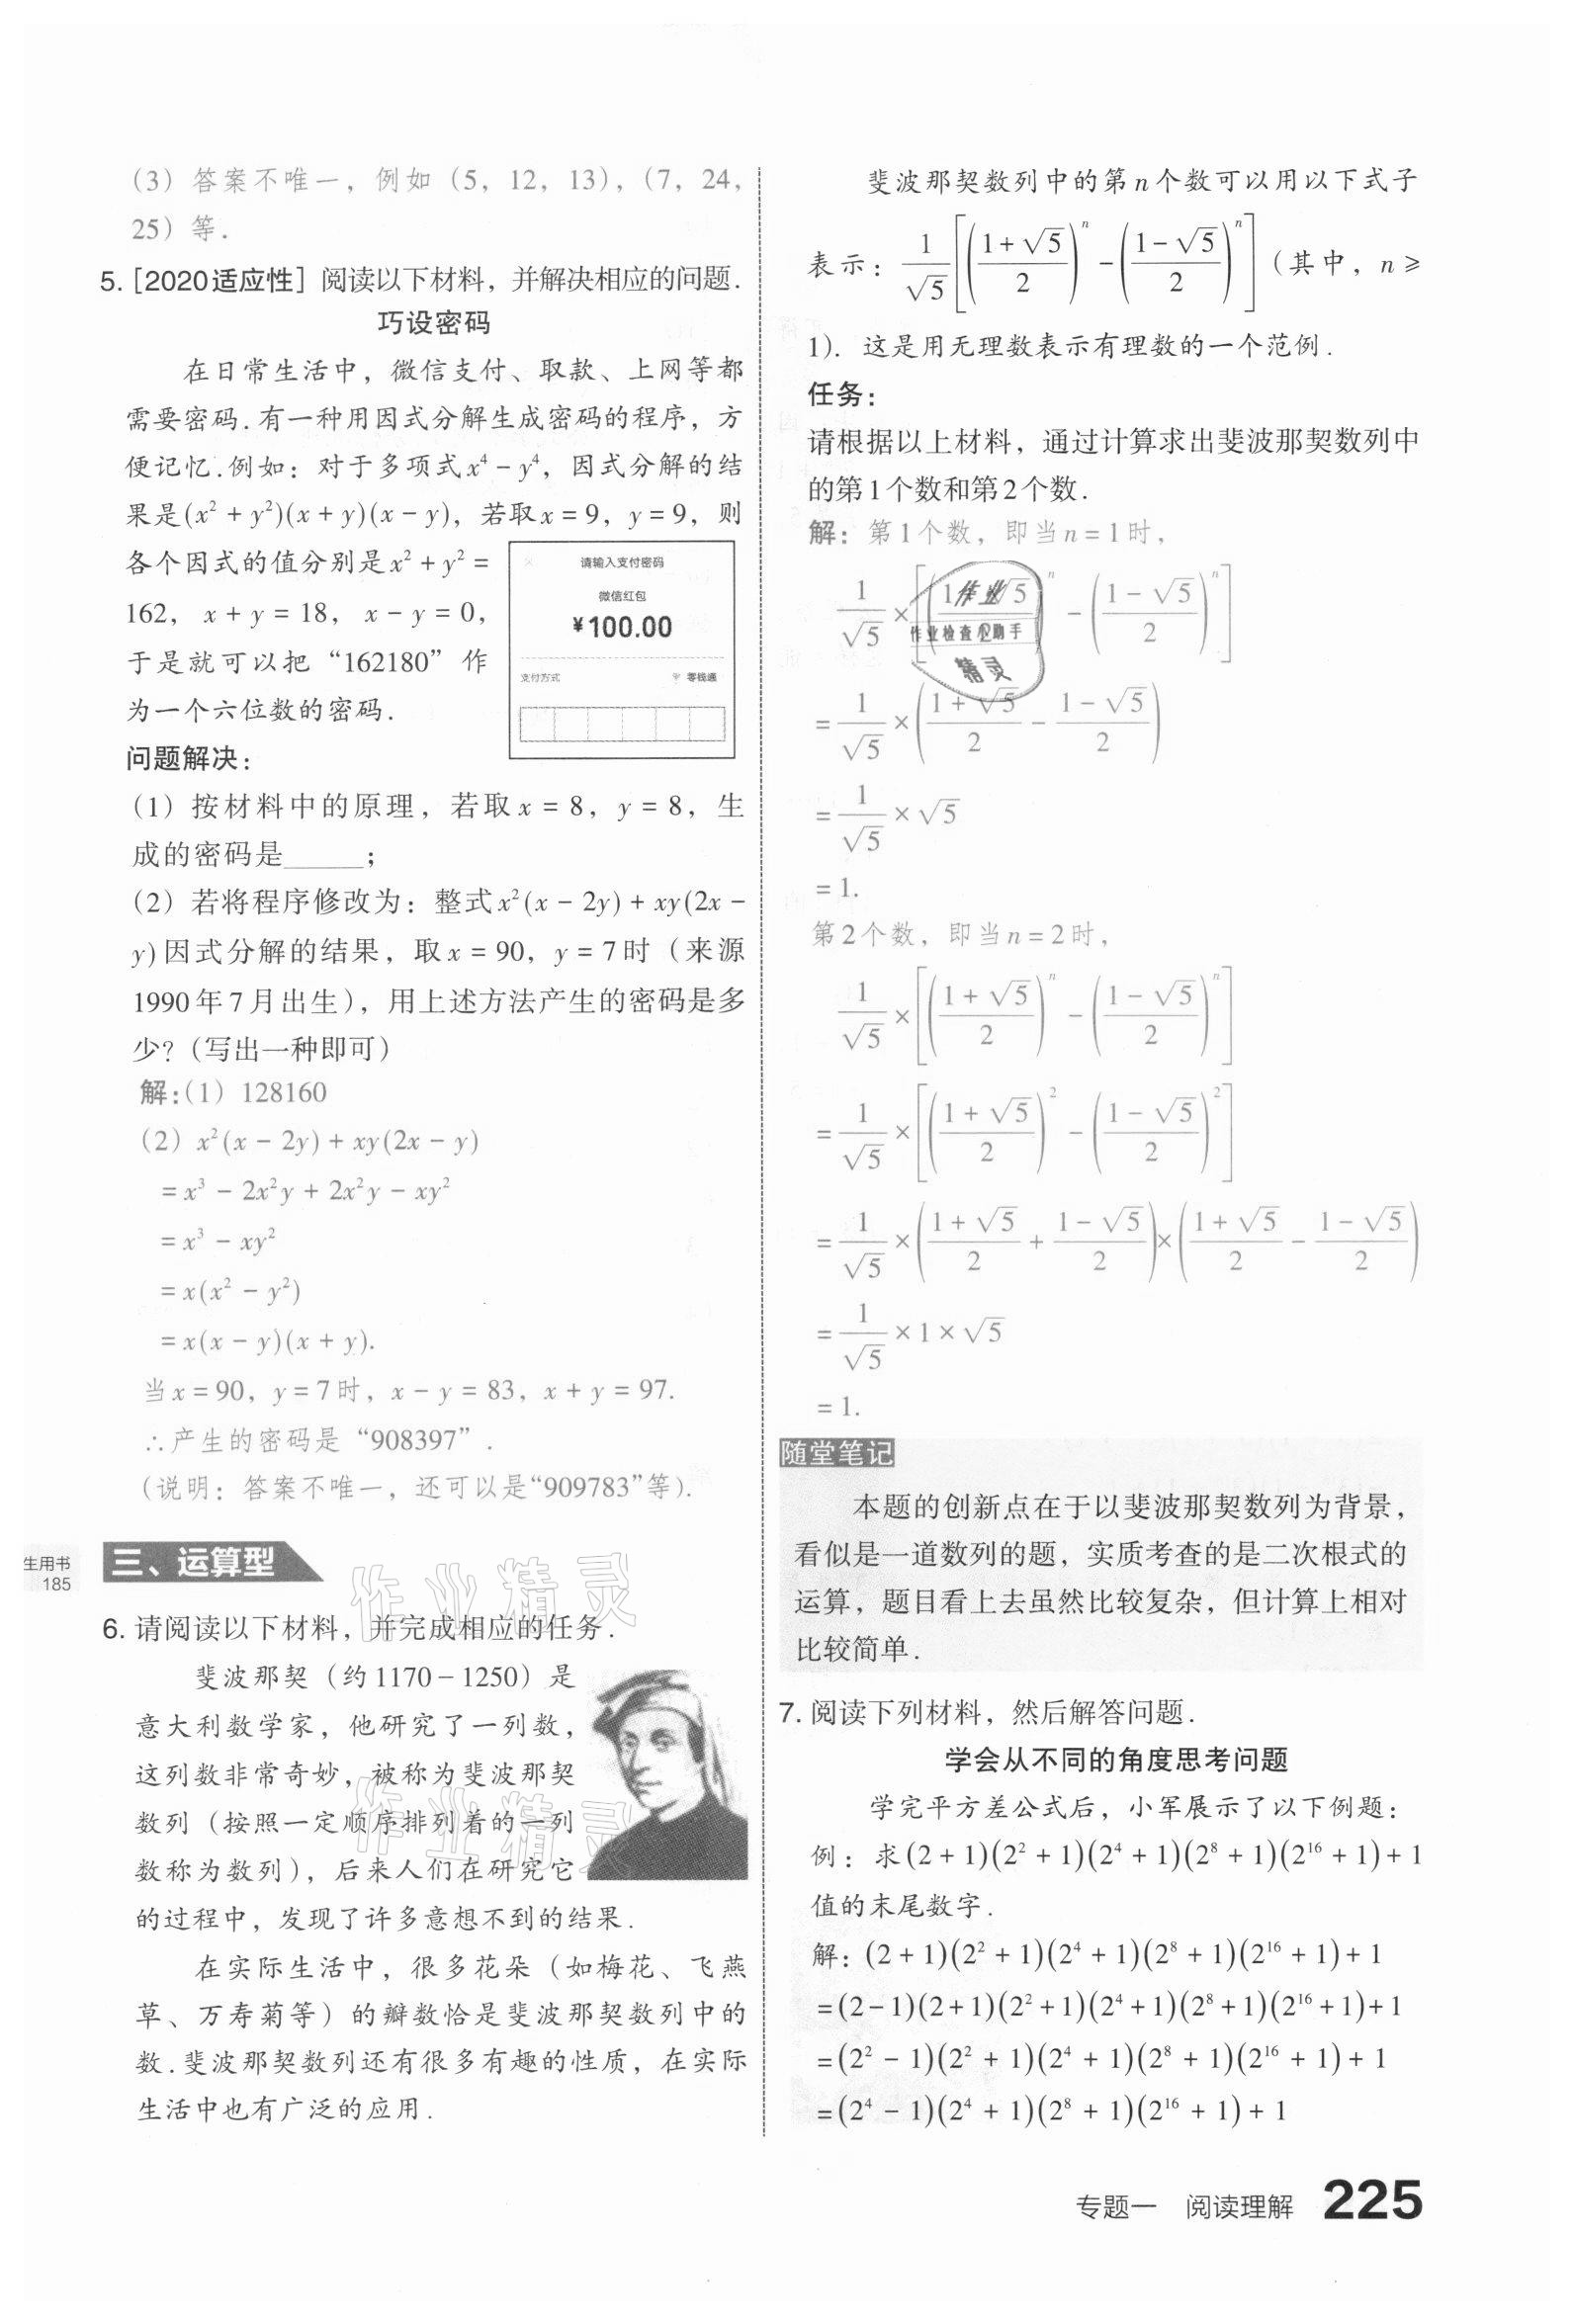 (3) 答案不唯一，例如（5，12，13），（7，24，
25）等．
5. [2020适应性] 阅读以下材料，并解决相应的问题．
巧设密码
在日常生活中，微信支付、取款、上网等都
需要密码．有一种用因式分解生成密码的程序，方
便记忆．例如：对于多项式x⁴－y⁴，因式分解的结
果是(x²＋y²)(x＋y)(x－y)，若取x＝9，y＝9，则
各个因式的值分别是x²＋y²＝
162，x＋y＝18，x－y＝0，
于是就可以把“162180”作
为一个六位数的密码．
请输入支付密码
微信红包
¥100.00
支付方式 零钱通
问题解决：
(1) 按材料中的原理，若取x＝8，y＝8，生
成的密码是_____；
(2) 若将程序修改为：整式x²(x－2y)＋xy(2x－
y)因式分解的结果，取x＝90，y＝7时（来源
1990年7月出生），用上述方法产生的密码是多
少？（写出一种即可）
解：(1) 128160
(2) x²(x－2y)＋xy(2x－y)
＝x³－2x²y＋2x²y－xy²
＝x³－xy²
＝x(x²－y²)
＝x(x－y)(x＋y).
当x＝90，y＝7时，x－y＝83，x＋y＝97.
∴产生的密码是“908397”．
（说明：答案不唯一，还可以是“909783”等）.
生用书
185
三、运算型
6. 请阅读以下材料，并完成相应的任务．
斐波那契（约1170－1250）是
意大利数学家，他研究了一列数，
这列数非常奇妙，被称为斐波那契
数列（按照一定顺序排列着的一列
数称为数列），后来人们在研究它
的过程中，发现了许多意想不到的结果．
在实际生活中，很多花朵（如梅花、飞燕
草、万寿菊等）的瓣数恰是斐波那契数列中的
数．斐波那契数列还有很多有趣的性质，在实际
生活中也有广泛的应用．
作业精灵
作业精灵
斐波那契数列中的第n个数可以用以下式子
表示：1/√5[((1＋√5)/2)ⁿ－((1－√5)/2)ⁿ]（其中，n≥
1）．这是用无理数表示有理数的一个范例．
任务：
请根据以上材料，通过计算求出斐波那契数列中
的第1个数和第2个数．
解：第1个数，即当n＝1时，
1/√5×[((1 √5)/2)ⁿ－((1－√5)/2)ⁿ]
作业
作业检查小助手
精灵
＝1/√5×((1＋√5)/2－(1－√5)/2)
＝1/√5×√5
＝1.
第2个数，即当n＝2时，
1/√5×[((1＋√5)/2)ⁿ－((1－√5)/2)ⁿ]
＝1/√5×[((1＋√5)/2)²－((1－√5)/2)²]
＝1/√5×((1＋√5)/2＋(1－√5)/2)×((1＋√5)/2－(1－√5)/2)
＝1/√5×1×√5
＝1.
随堂笔记
本题的创新点在于以斐波那契数列为背景，
看似是一道数列的题，实质考查的是二次根式的
运算，题目看上去虽然比较复杂，但计算上相对
比较简单．
7. 阅读下列材料，然后解答问题．
学会从不同的角度思考问题
学完平方差公式后，小军展示了以下例题：
例：求(2＋1)(2²＋1)(2⁴＋1)(2⁸＋1)(2¹⁶＋1)＋1
值的末尾数字．
解：(2＋1)(2²＋1)(2⁴＋1)(2⁸＋1)(2¹⁶＋1)＋1
＝(2－1)(2＋1)(2²＋1)(2⁴＋1)(2⁸＋1)(2¹⁶＋1)＋1
＝(2²－1)(2²＋1)(2⁴＋1)(2⁸＋1)(2¹⁶＋1)＋1
＝(2⁴－1)(2⁴＋1)(2⁸＋1)(2¹⁶＋1)＋1
专题一 阅读理解 225